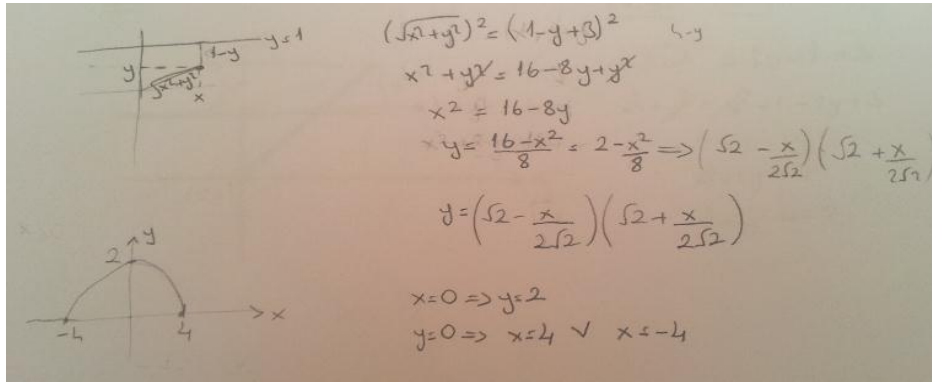 y=1
1-y
y
√x²+y²
x
(√x²+y²)² = (1-y+3)²
4-y
x²+y² = 16-8y+y²
x² = 16-8y
y = (16-x²)/8 = 2-x²/8 => (√2 - x/2√2)(√2 + x/2√2)
y = (√2 - x/2√2)(√2 + x/2√2)
y
2
-4
4
x
x=0 => y=2
y=0 => x=4 ∨ x=-4